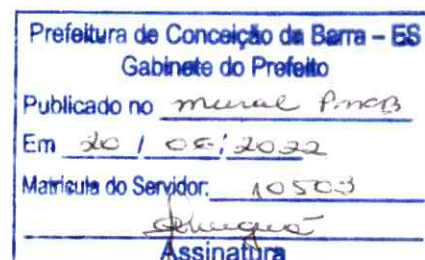 Prefeitura de Conceição da Barra – ES
Gabinete do Prefeito
Publicado no mural PMCB
Em 20 / / 2022
Matrícula do Servidor: 10503
Assinatura